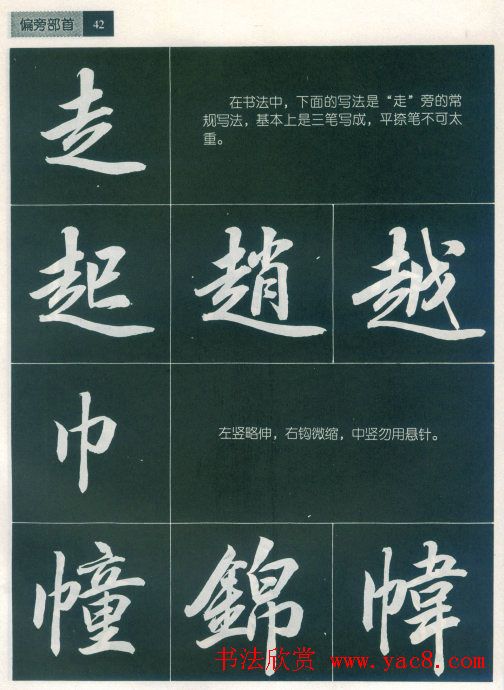 偏旁部首 42
走
在书法中，下面的写法是“走”旁的常
规写法，基本上是三笔写成，平捺笔不可太
重。
起 趙 越
巾
左竖略伸，右钩微缩，中竖勿用悬针。
幢 錦 幃
书法欣赏 www.yac8.com